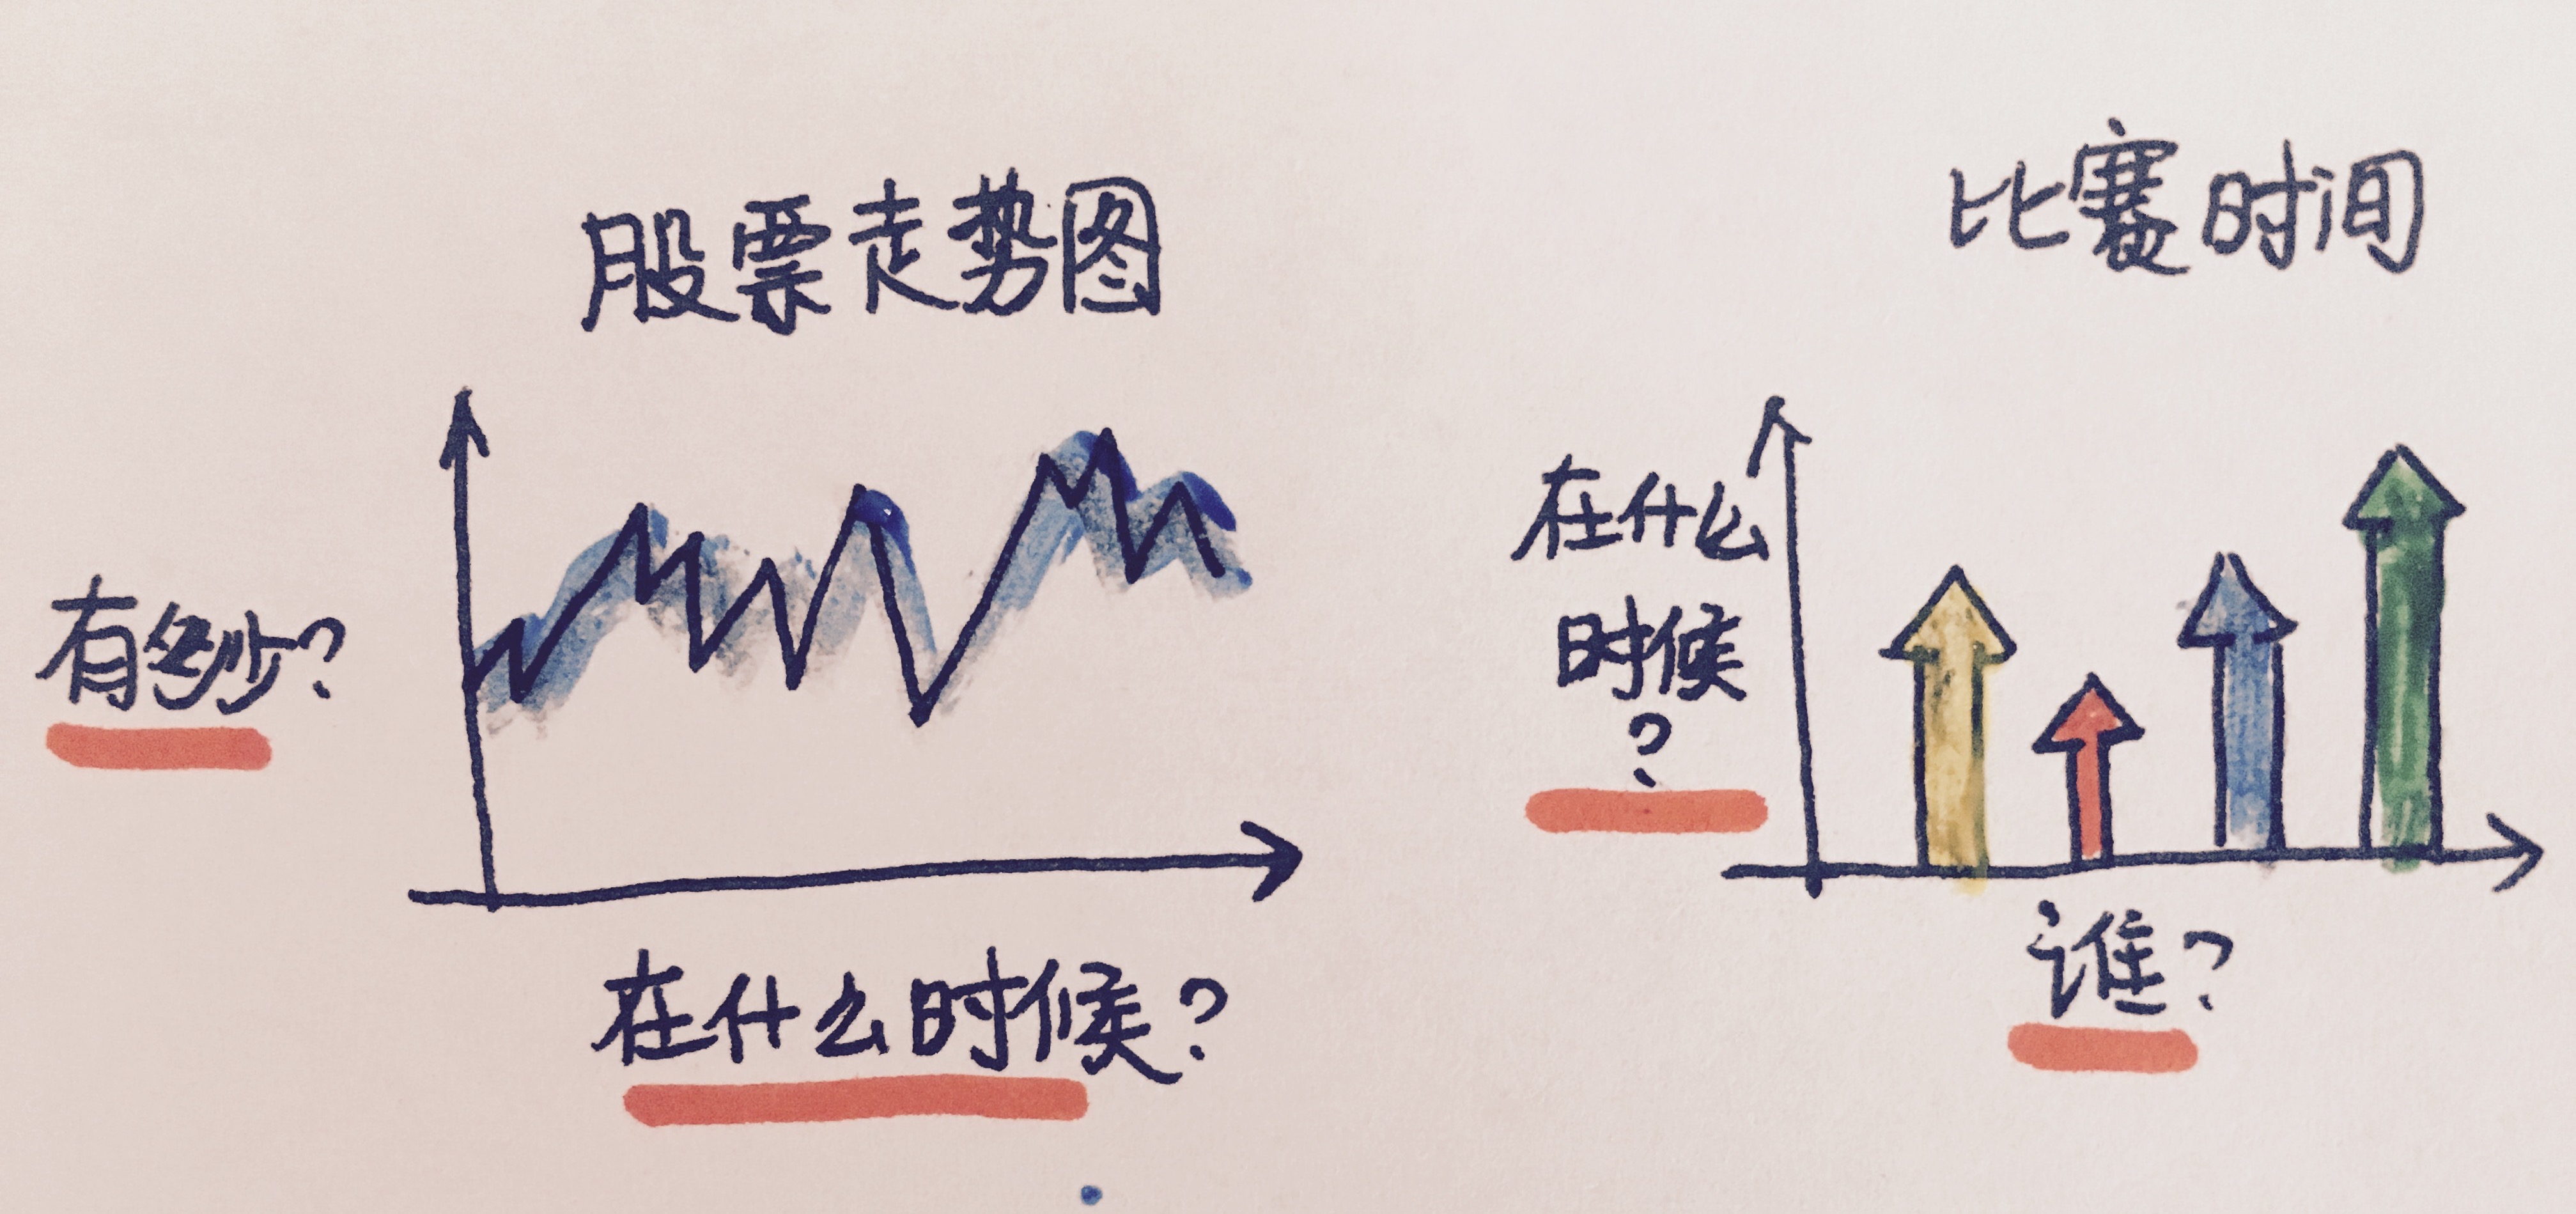 股票走势图
有多少?
在什么时候?
比赛时间
在什么
时候
?
谁?